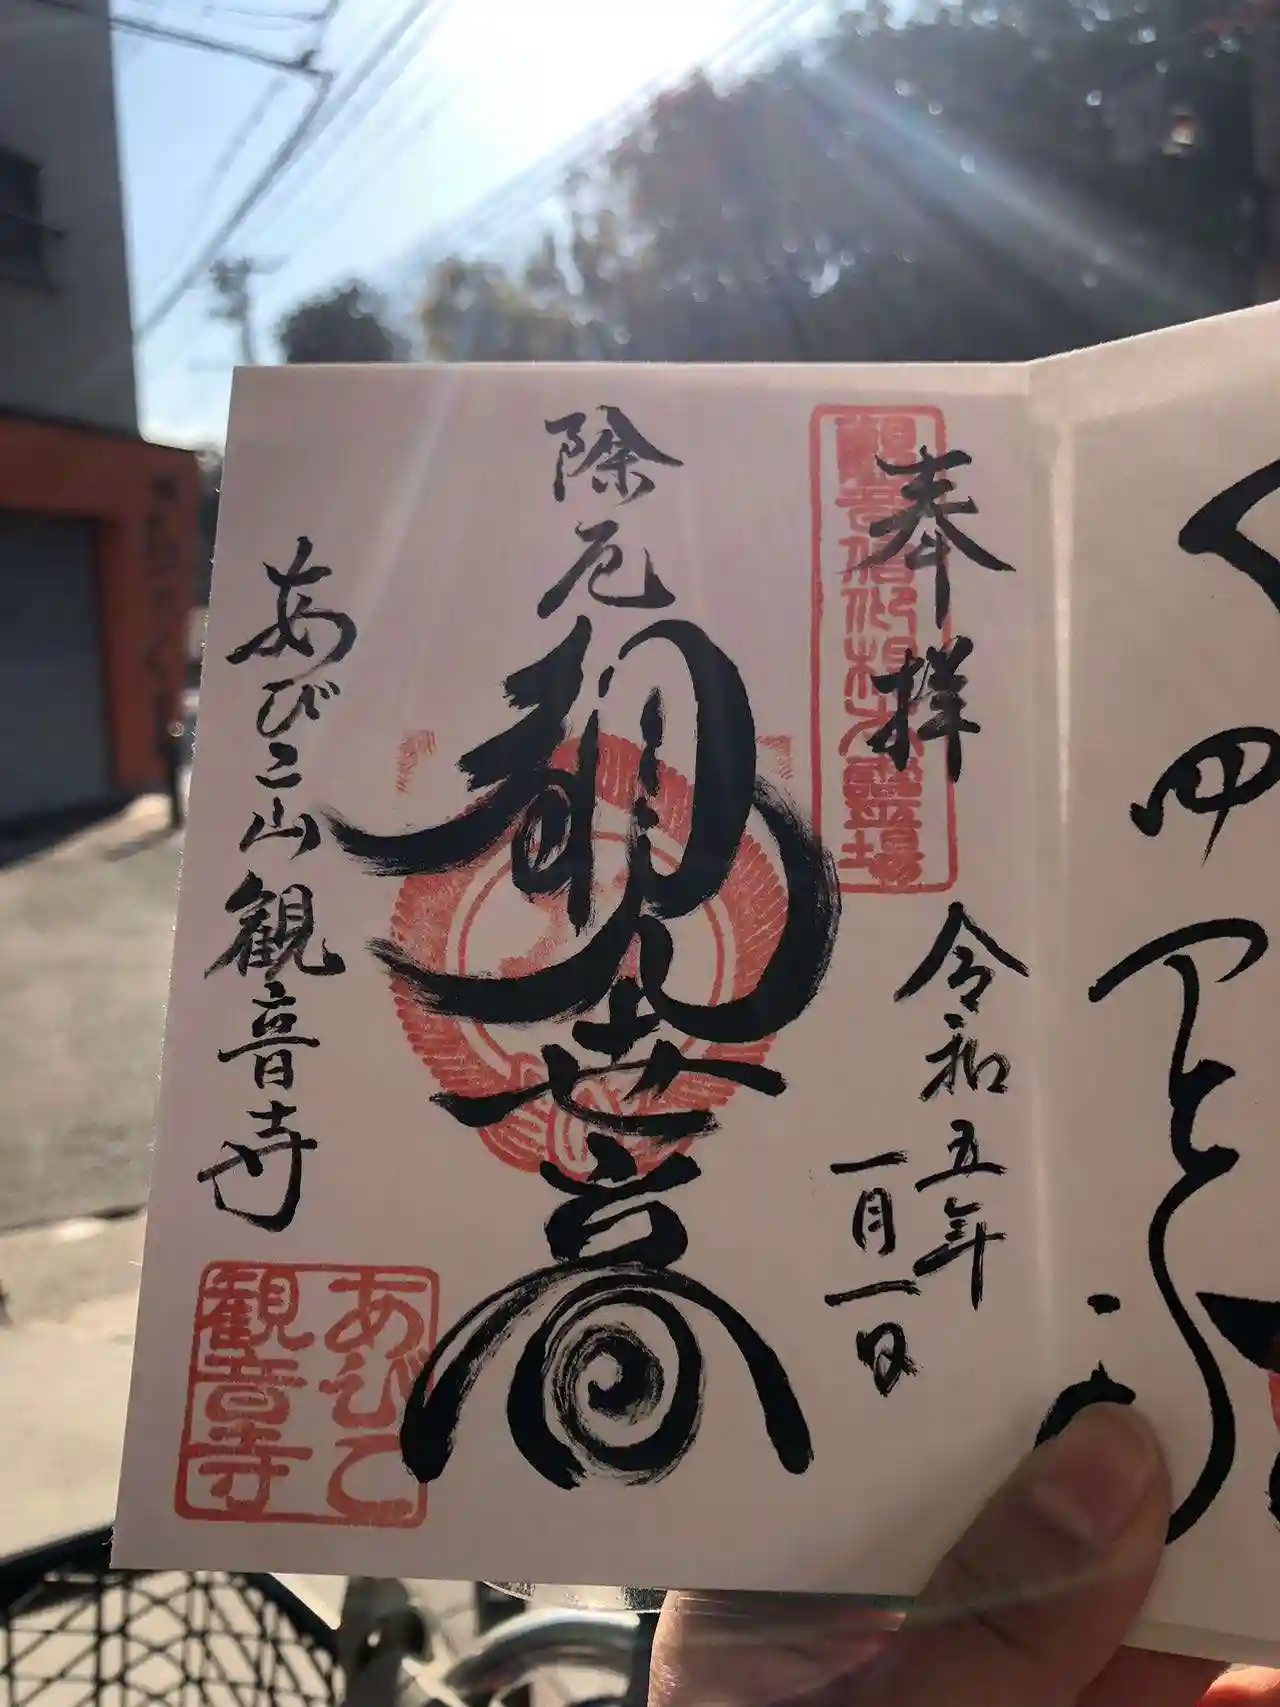 奉拝
令和五年
一月一日
観音信仰根本霊場
除厄
観世音
あびこ山観音寺
あびこ
観音寺